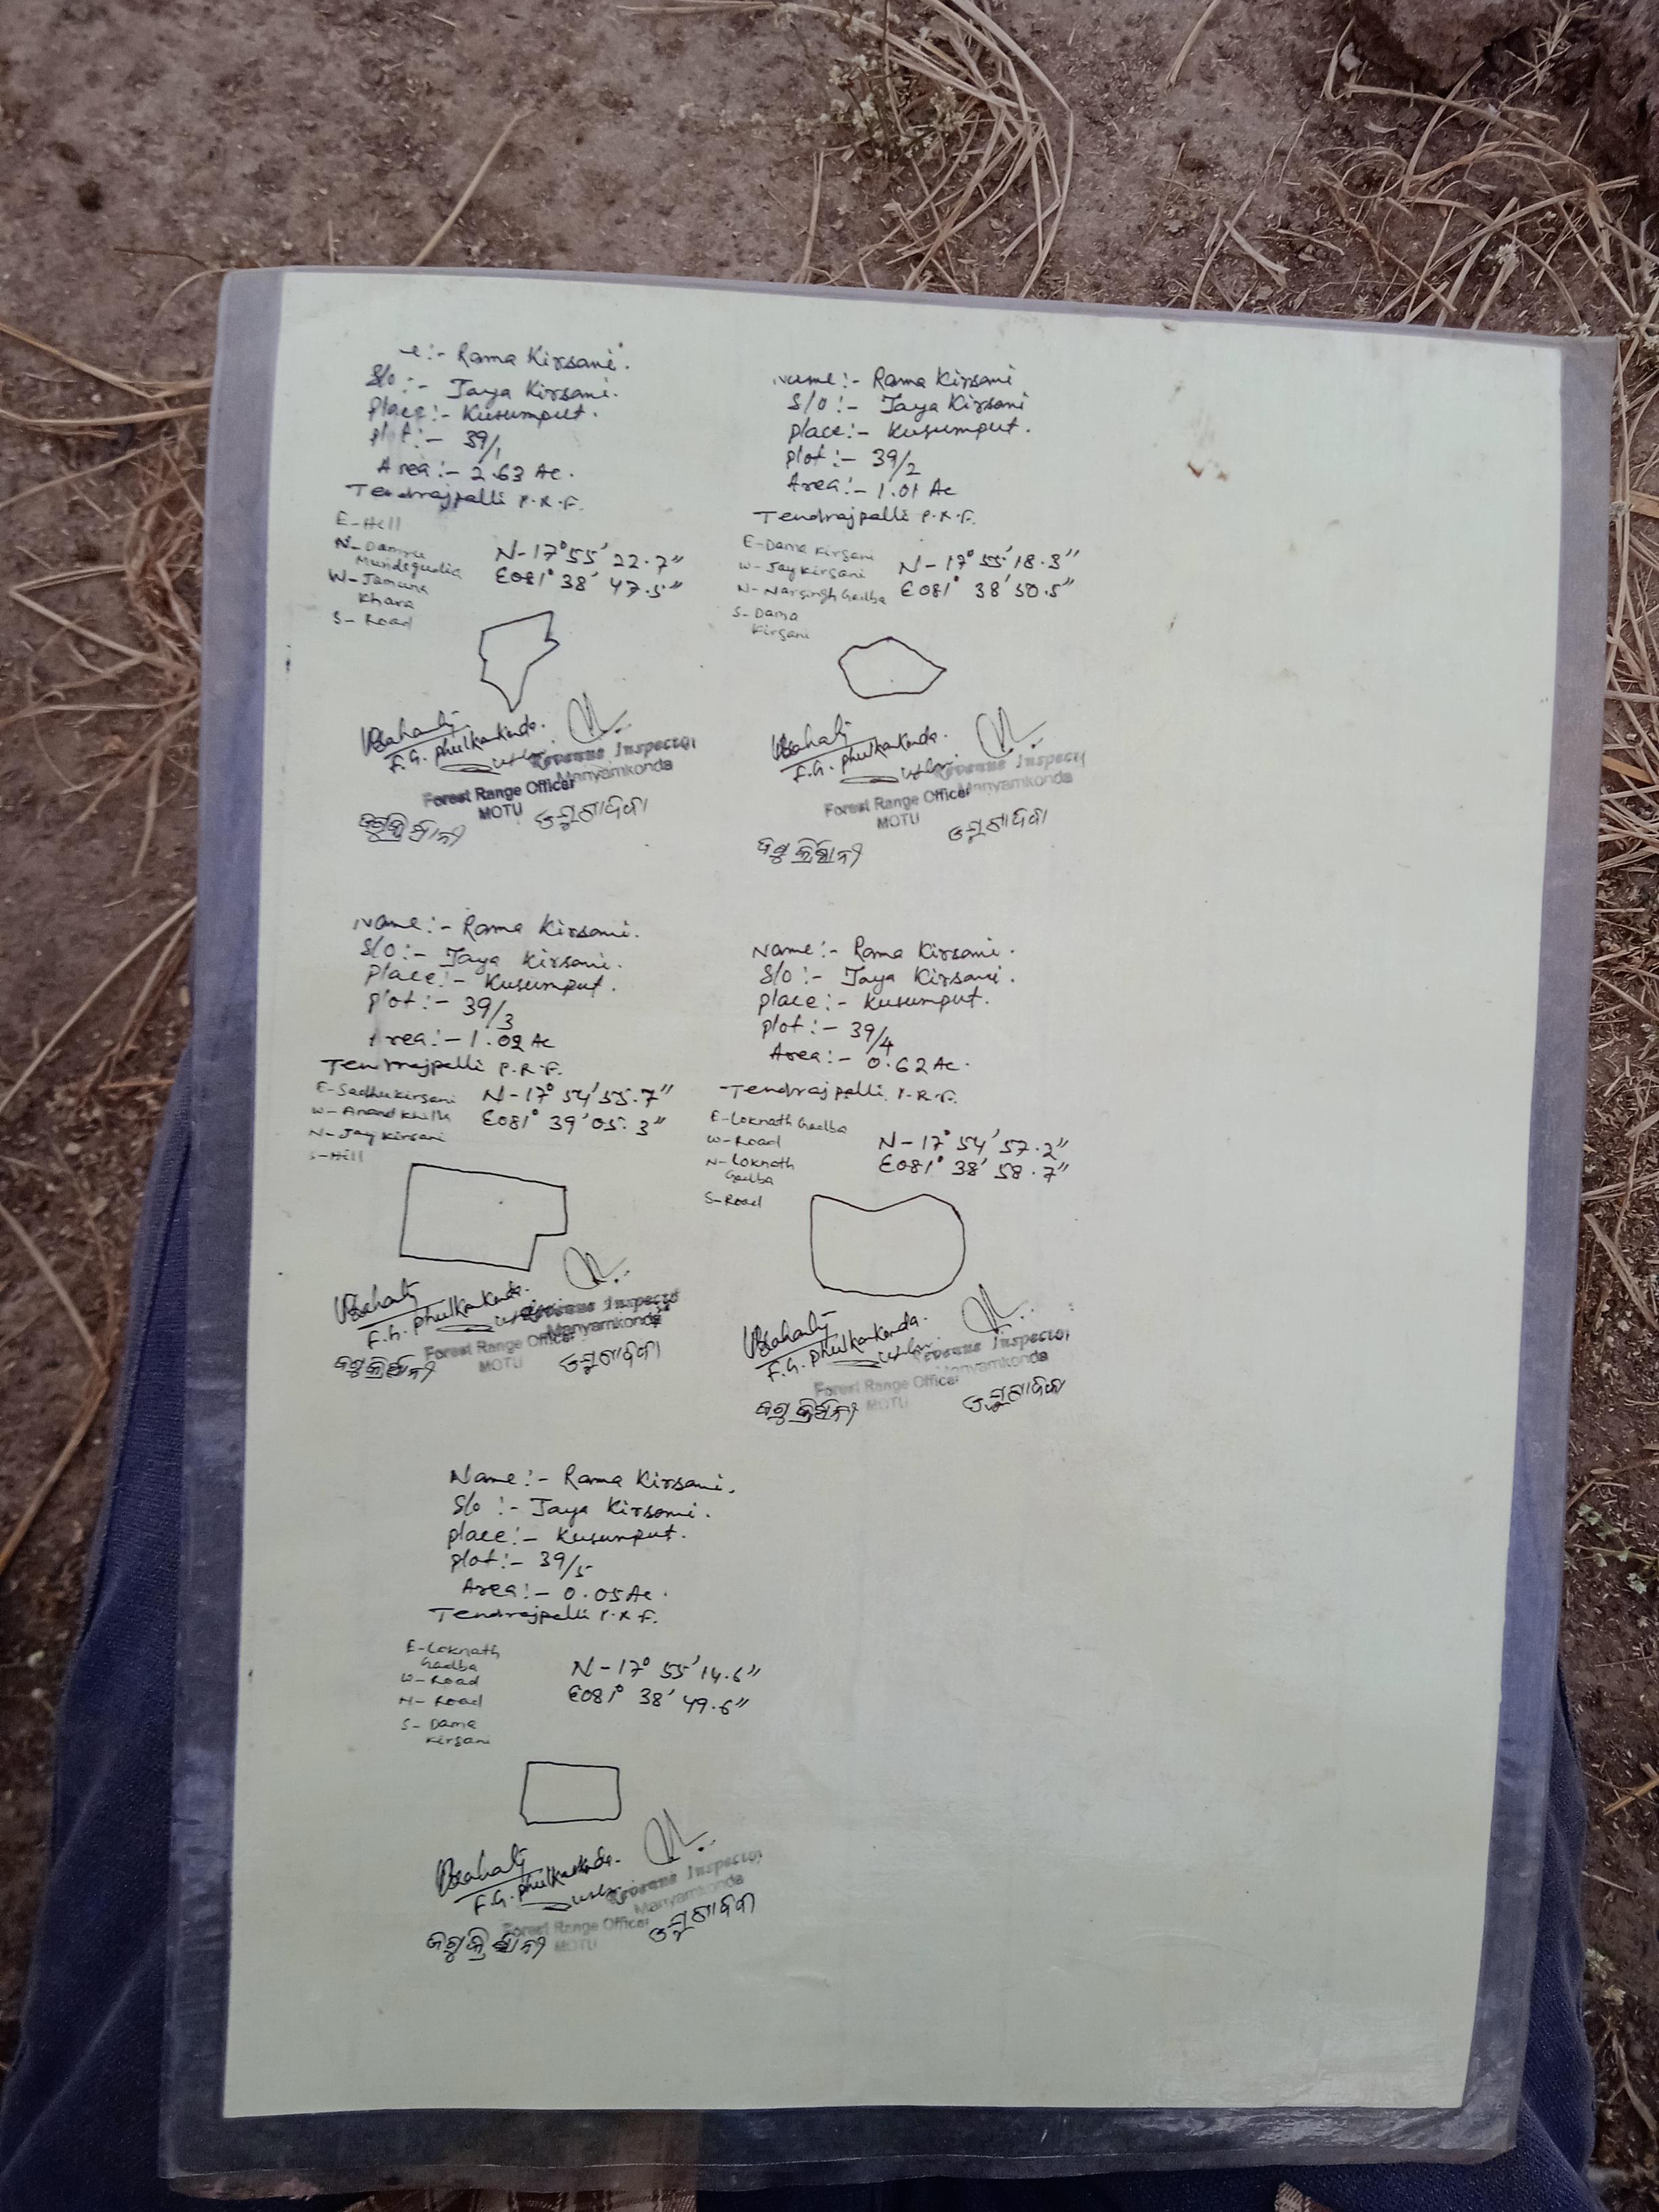 e:- Rama Kirsani.
S/o:- Jaya Kirsani.
place:- Kusumput.
plot:- 39/1
Area:- 2.63 Ac.
Tendrajpalli P.R.F.
E-Hill
N-Damru
Mundagudia
W-Jamuna
Khara
S-Road
N-17° 55' 22.7"
E081° 38' 47.5"
F.G. Phulkankonda.
Revenue Inspector
Manyamkonda
Forest Range Officer
MOTU
Name:- Rama Kirsani
S/o:- Jaya Kirsani
place:- Kusumput.
plot:- 39/2
Area:- 1.01 Ac
Tendrajpalli P.R.F.
E-Dama Kirsani
W-Jay Kirsani
N-Narsingh Gadba
S-Dama
Kirsani
N-17° 55' 18.3"
E081° 38' 50.5"
F.G. Phulkankonda.
Revenue Inspector
Manyamkonda
Forest Range Officer
MOTU
Name:- Rama Kirsani.
S/o:- Jaya Kirsani.
place:- Kusumput.
plot:- 39/3
Area:- 1.02 Ac
Tendrajpalli P.R.F.
E-Sadhu Kirsani
W-Anand
N-Jay Kirsani
S-Hill
N-17° 54' 55.7"
E081° 39' 05.3"
F.G. Phulkankonda.
Revenue Inspector
Manyamkonda
Forest Range Officer
MOTU
Name:- Rama Kirsani.
S/o:- Jaya Kirsani.
place:- Kusumput.
plot:- 39/4
Area:- 0.62 Ac.
Tendrajpalli P.R.F.
E-Loknath Gadba
W-Road
N-Loknath
Gadba
S-Road
N-17° 54' 57.2"
E081° 38' 58.7"
F.G. Phulkankonda.
Revenue Inspector
Manyamkonda
Forest Range Officer
MOTU
Name:- Rama Kirsani.
S/o:- Jaya Kirsani.
place:- Kusumput.
plot:- 39/5
Area:- 0.05 Ac.
Tendrajpalli P.R.F.
E-Loknath
Gadba
W-Road
N-Road
S-Dama
Kirsani
N-17° 55' 14.6"
E081° 38' 49.6"
F.G. Phulkankonda.
Revenue Inspector
Manyamkonda
Forest Range Officer
MOTU